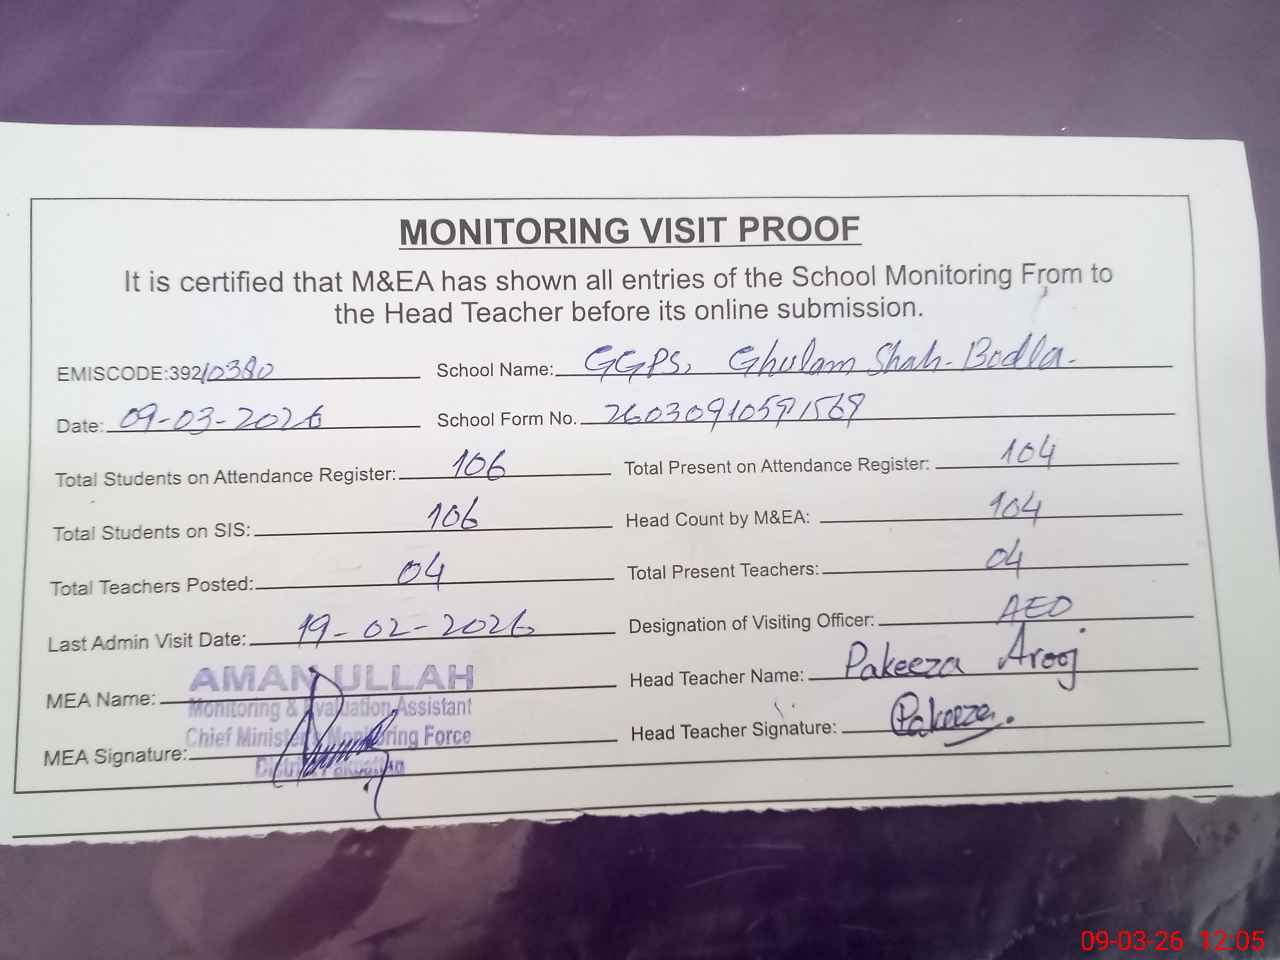 MONITORING VISIT PROOF
It is certified that M&EA has shown all entries of the School Monitoring From to
the Head Teacher before its online submission.
EMISCODE:39210380 School Name: GGPS, Ghulam Shah Bodla.
Date: 09-03-2026 School Form No. 26030910591569
Total Students on Attendance Register: 106 Total Present on Attendance Register: 104
Total Students on SIS: 106 Head Count by M&EA: 104
Total Teachers Posted: 04 Total Present Teachers: 04
Last Admin Visit Date: 19-02-2026 Designation of Visiting Officer: AEO
MEA Name: AMAN ULLAH Head Teacher Name: Pakeeza Arooj
Monitoring & Evaluation Assistant
Chief Minister's Monitoring Force
MEA Signature: District Pakpattan Head Teacher Signature: Pakeeza.
09-03-26 12:05